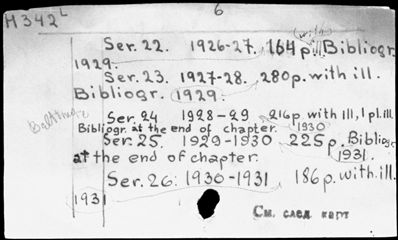 H 342 L
6
(with)
Ser. 22. 1926-27. 164 p. ill. Bibliogr.
1929.
Ser. 23. 1927-28. 280 p. with ill.
Bibliogr. (1929.
Baltimore
Ser. 24 1928-29 216 p. with ill, 1 pl. ill.
Bibliogr. at the end of chapter. 1930
Ser. 25. 1929-1930 225 p. Bibliogr
at the end of chapter. 1931.
Ser. 26. 1930-1931 186 p. with. ill.
1931
См. след карт